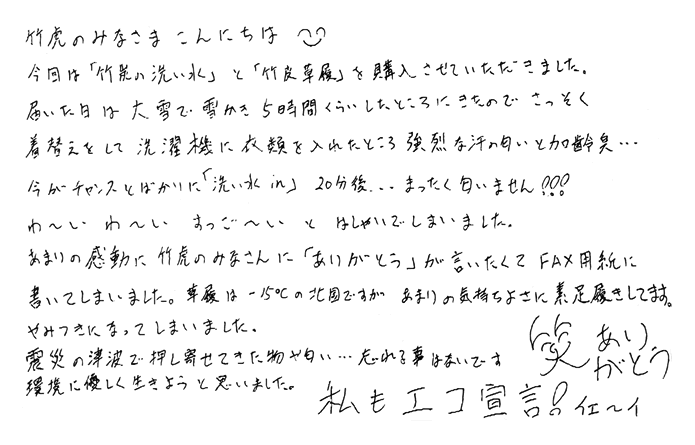 竹虎のみなさま こんにちは
今回は「竹炭の洗い水」と「竹皮草履」を購入させていただきました。
届いた日は大雪で雪かき5時間くらいしたところにきたので さっそく
着替えをして 洗濯機に衣類を入れたところ 強烈な汗の匂いと加齢臭…
今がチャンスとばかりに「洗い水in」 20分後... まったく匂いません!!!
わ〜い わ〜い すっご〜い と はしゃいでしまいました。
あまりの感動に 竹虎のみなさんに「ありがとう」が言いたくて FAX用紙に
書いてしまいました。草履は -15℃の北国ですが あまりの気持ちよさに素足履きしてます。
やみつきになってしまいました。
震災の津波で押し寄せてきた物や匂い… 忘れる事はないです
環境に優しく生きようと思いました。
笑 あり
がとう
私もエコ宣言! イェーイ